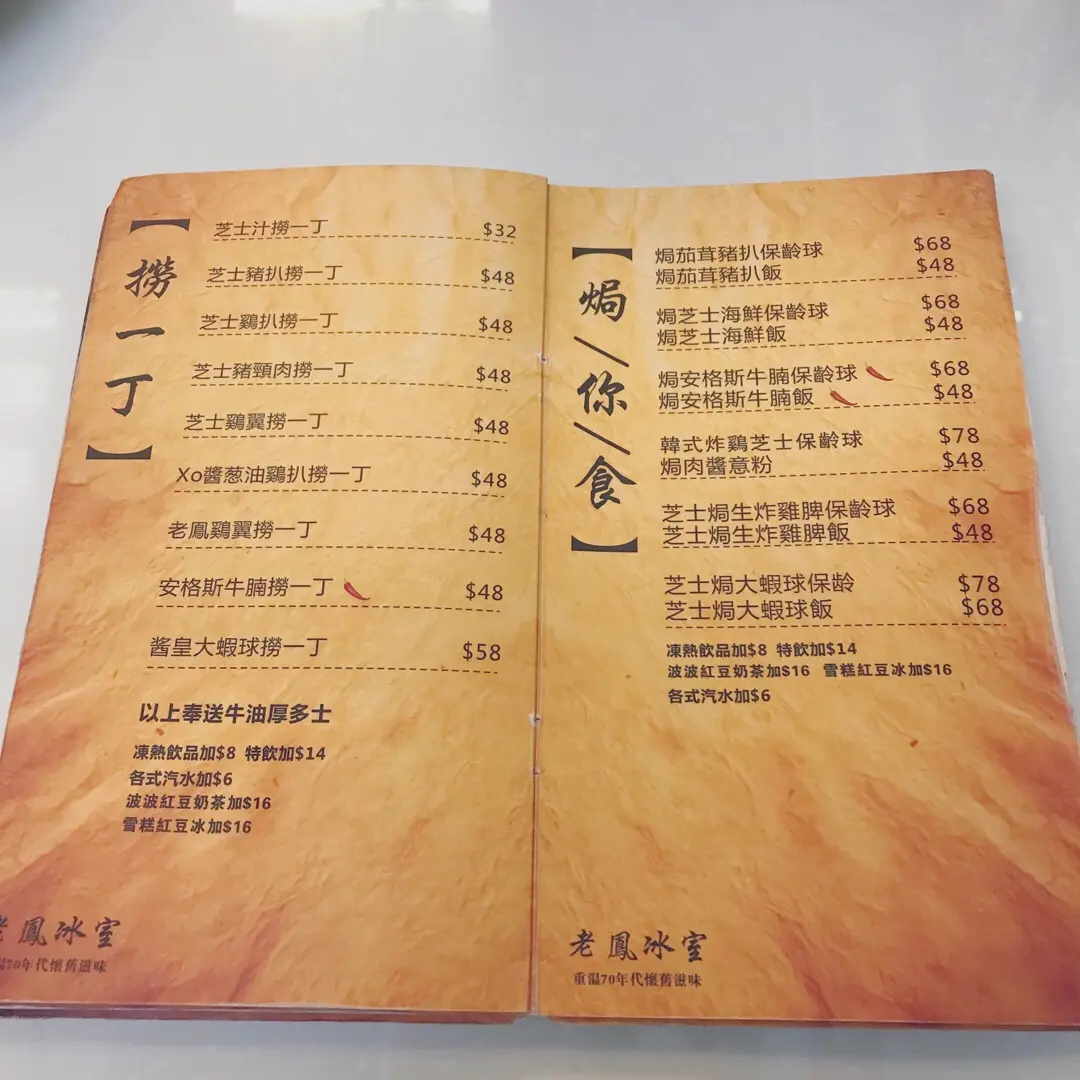 【撈一丁】
芝士汁撈一丁 $32
芝士豬扒撈一丁 $48
芝士鷄扒撈一丁 $48
芝士豬頸肉撈一丁 $48
芝士鷄翼撈一丁 $48
Xo醬葱油鷄扒撈一丁 $48
老鳳鷄翼撈一丁 $48
安格斯牛腩撈一丁 $48
酱皇大蝦球撈一丁 $58
以上奉送牛油厚多士
凍熱飲品加$8 特飲加$14
各式汽水加$6
波波紅豆奶茶加$16
雪糕紅豆冰加$16
老鳳冰室
温70年代懷舊滋味
【焗/你/食】
焗茄茸豬扒保齡球 $68
焗茄茸豬扒飯 $48
焗芝士海鮮保齡球 $68
焗芝士海鮮飯 $48
焗安格斯牛腩保齡球 $68
焗安格斯牛腩飯 $48
韓式炸鷄芝士保齡球 $78
焗肉醬意粉 $48
芝士焗生炸雞脾保齡球 $68
芝士焗生炸雞脾飯 $48
芝士焗大蝦球保龄 $78
芝士焗大蝦球飯 $68
凍熱飲品加$8 特飲加$14
波波紅豆奶茶加$16 雪糕紅豆冰加$16
各式汽水加$6
老鳳冰室
重温70年代懷舊滋味